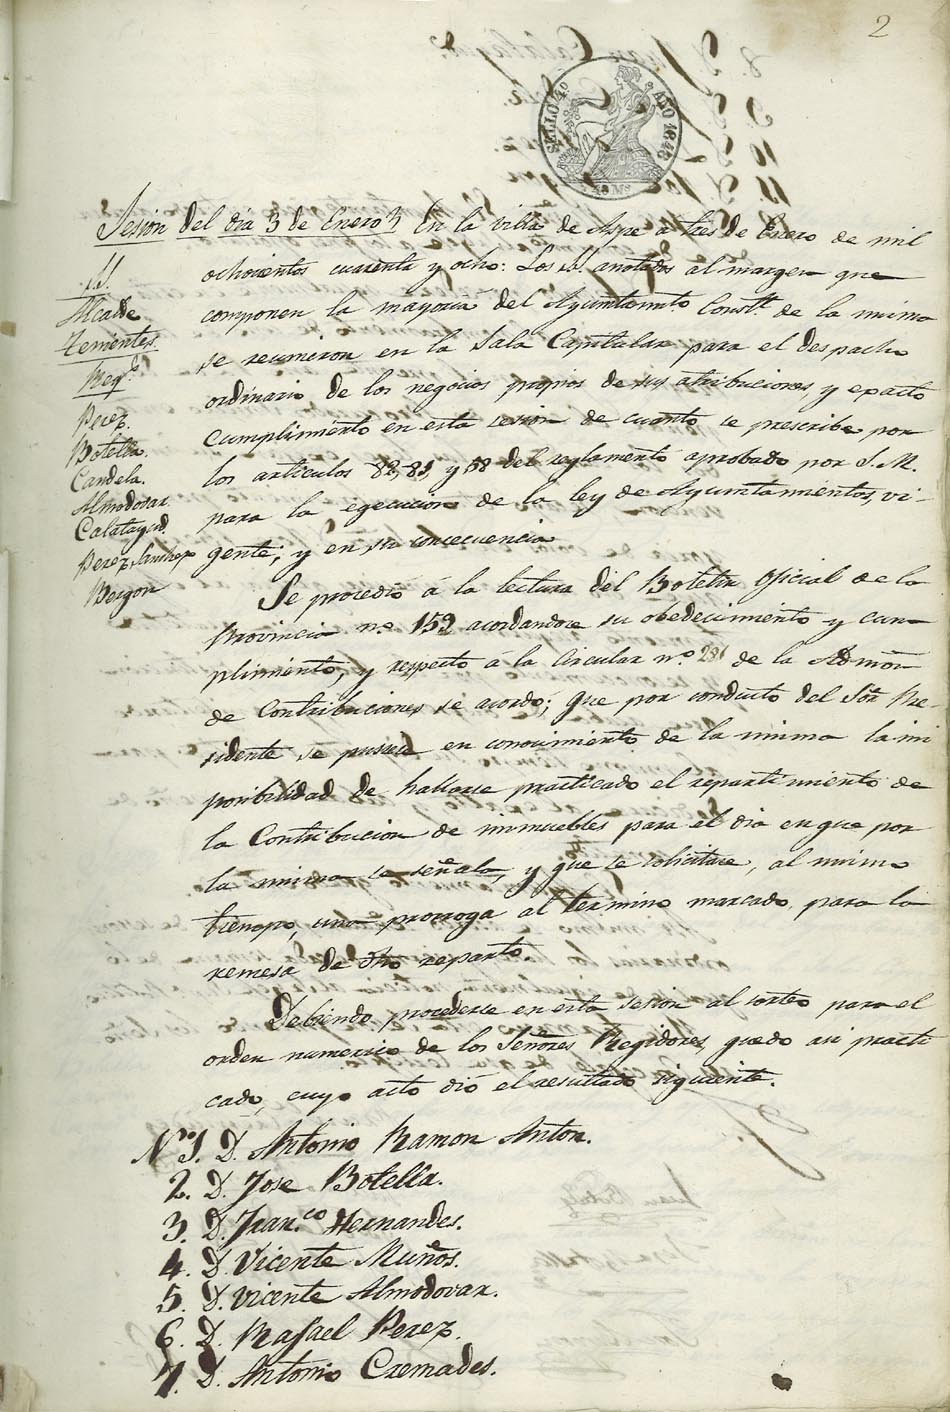 2
SELLO 4º AÑO 1848
40 Ms
Sesion del dia 3 de Enero } En la villa de Aspe a tres de Enero de mil
ochocientos cuarenta y ocho: Los SS. anotados al margen que
componen la mayoria del Ayuntamto. Constl. de la misma
se reunieron en la Sala Capitular para el despacho
ordinario de los negocios propios de sus atribuciones, y exacto
cumplimiento en esta sesion de cuanto se prescribe por
los articulos 82, 83, y 58 del reglamento aprobado por S. M.
para la egecucion de la ley de Ayuntamientos, vi-
gente; y en su concecuencia
SS.
Alcalde
Tenientes.
Regs.
Perez.
Botella.
Candela.
Almodovar.
Calatayud.
Perez Sanchez
Pergon
Se procedió á la lectura del Boletin Oficial de la
Provincia nº 152 acordandose su obedecimiento y cum
plimiento; y respecto á la Circular nº 281 de la Admon
de Contribuciones se acordó; que por conducto del Sõr Pre-
sidente se pusiese en conocimiento de la misma la im
posibilidad de hallarse practicado el repartimiento de
la Contribucion de inmuebles para el dia en que por
la misma se señala, y que se solicitase, al mismo
tiempo, una prorroga al termino marcado para la
remesa de dho reparto.
Debiendo procederse en esta sesion al sorteo para el
orden numerico de los Señores Regidores, quedo asi practi
cado, cuyo acto dió el resultado siguiente.
Nº 1. D. Antonio Ramon Anton.
2. D. Jose Botella.
3. D. Fran.co Hernandes.
4. D. Vicente Muños.
5. D. Vicente Almodovar.
6. D. Rafael Perez.
7. D. Antonio Cremades.